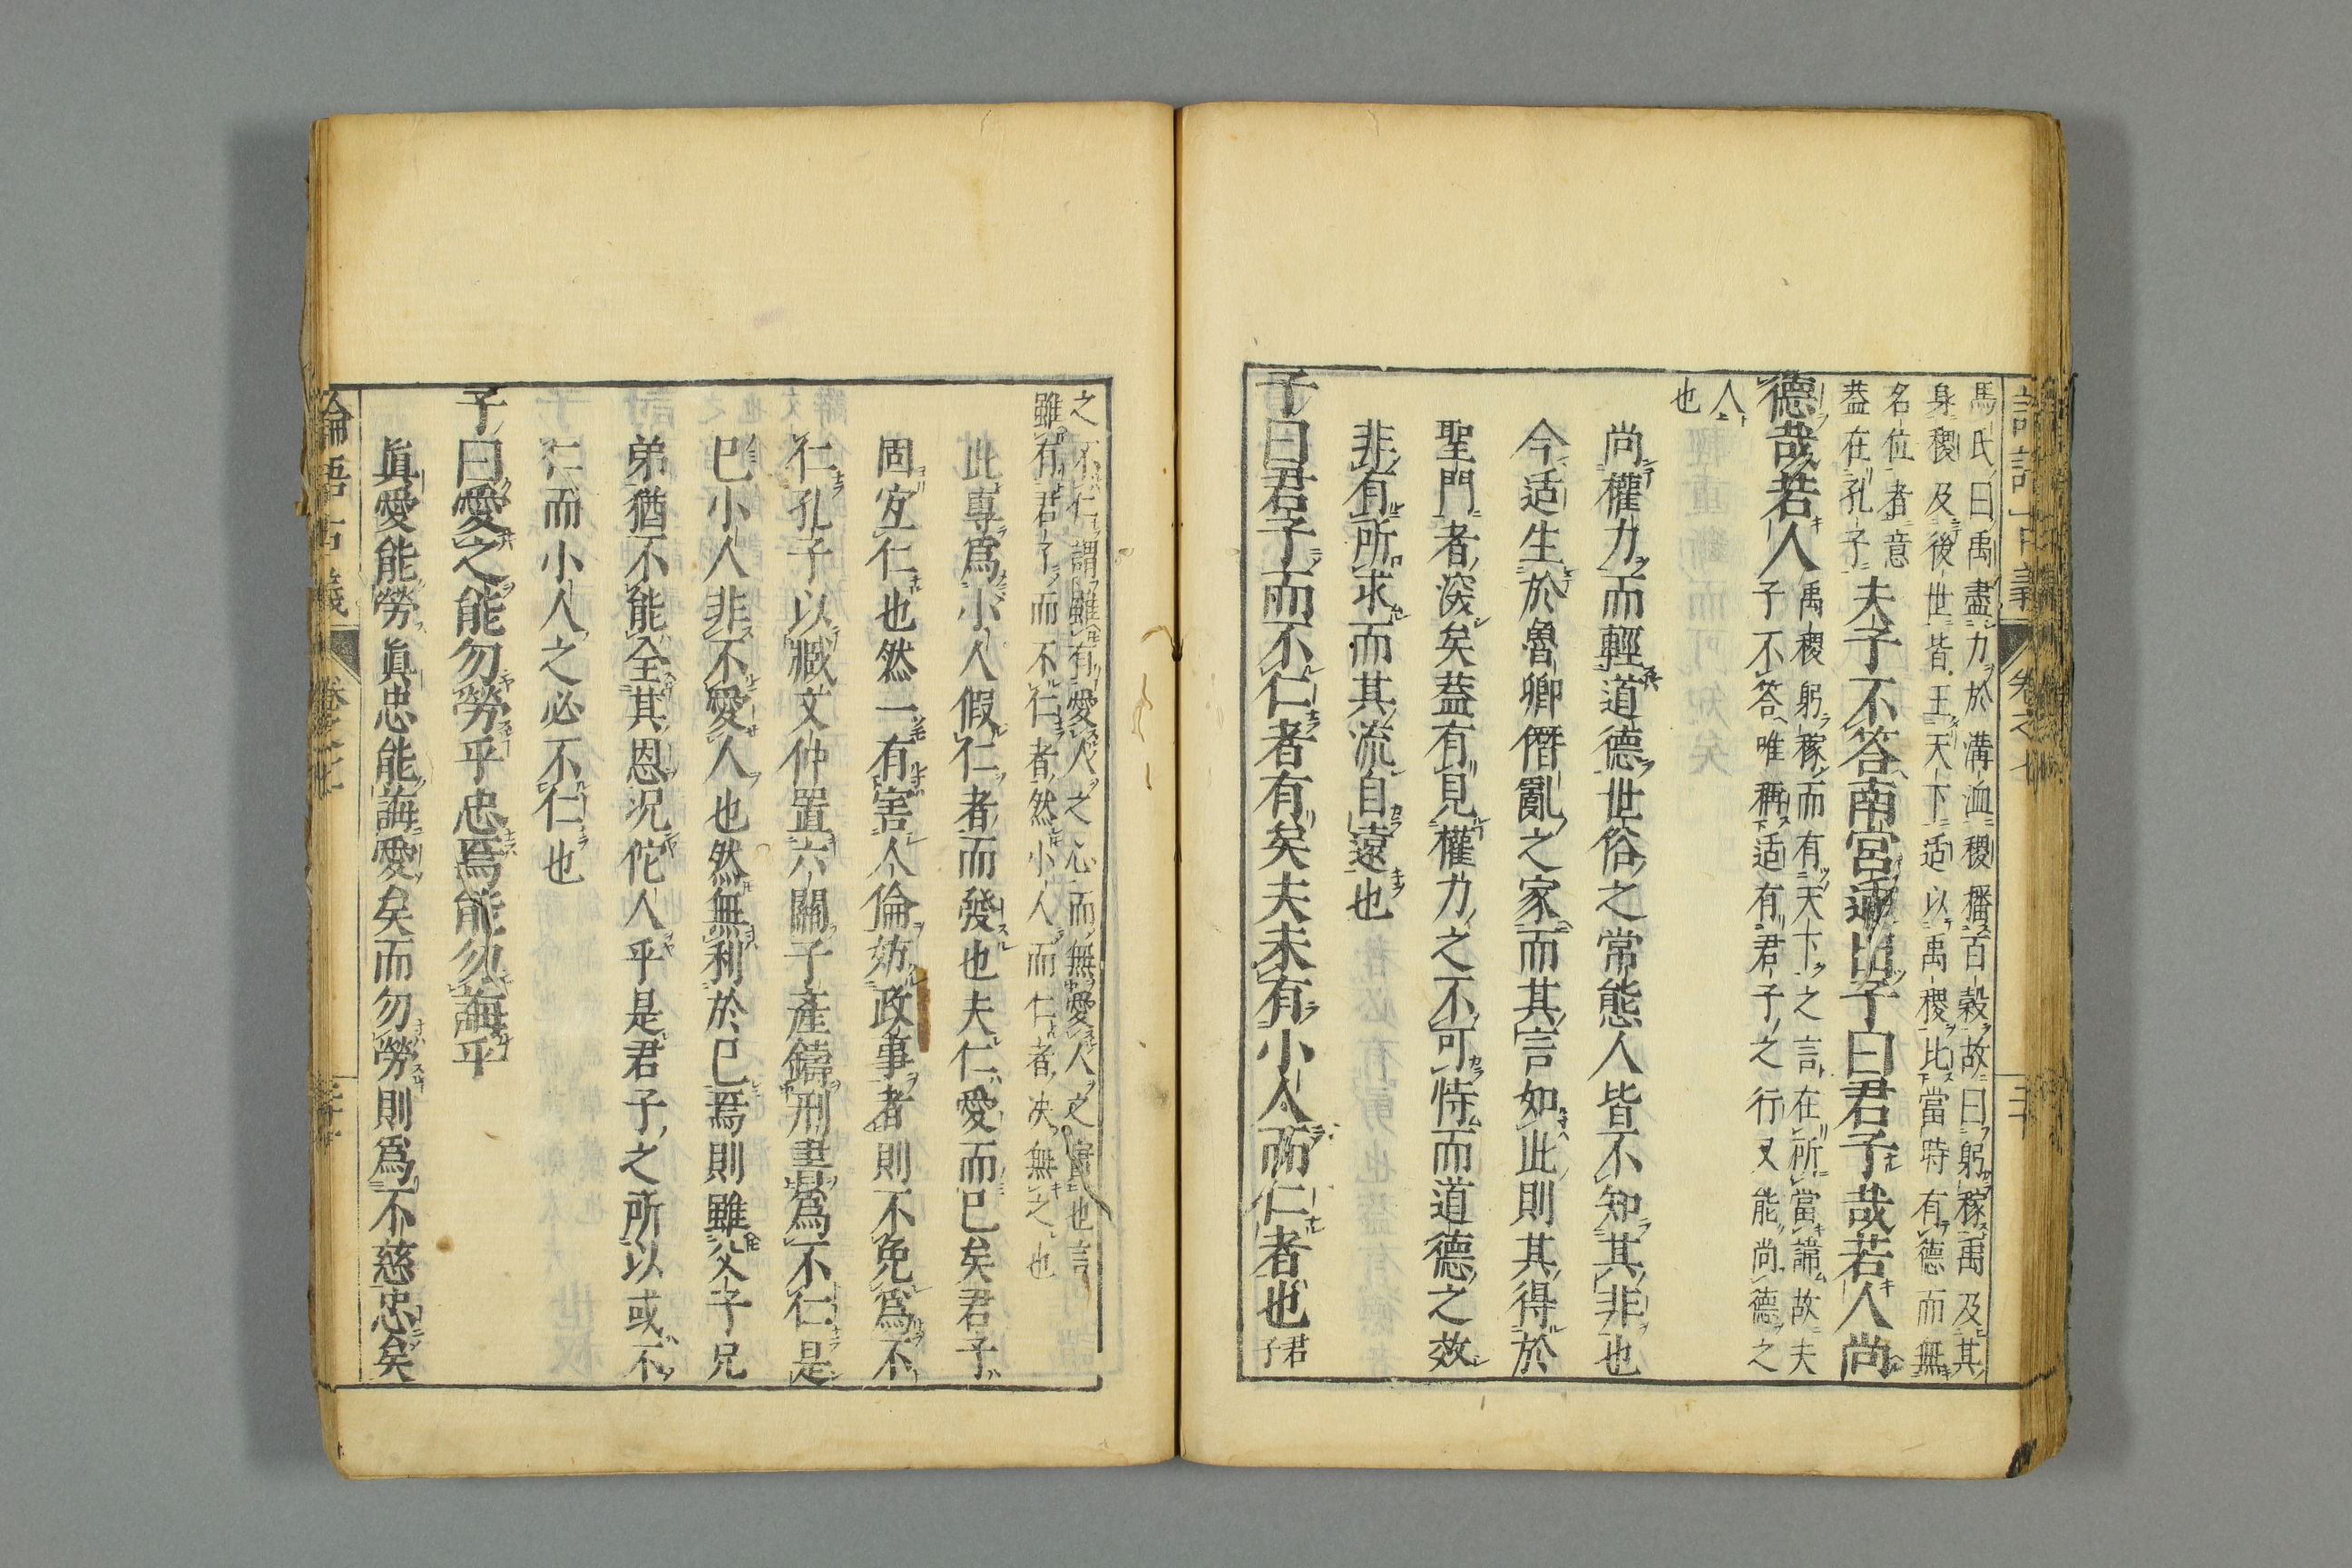 馬氏曰禹盡力於溝洫稷播百穀故曰躬稼禹及其
身稷及後世皆王天下适以禹稷比當時有德而無
名位者意
葢在孔子
夫子不答南宮适出子曰君子哉若人尚
德哉若人
禹稷躬稼而有天下之言在所當諦故夫
子不答唯稱适有君子之行又能尚德之
人
也
尚權力而輕道德世俗之常態人皆不知其非也
今适生於魯卿僭亂之家而其言如此則其得於
聖門者深矣葢有見權力之不可恃而道德之效
非有所求而其流自遠也
子曰君子而不仁者有矣夫未有小人而仁者也
君
子
之不仁謂雖有愛人之心而無愛人之實也言
雖有君子而不仁者然小人而仁者决無之也
此專爲小人假仁者而發也夫仁愛而已矣君子
固宜仁也然一有害人倫妨政事者則不免爲不
仁孔子以臧文仲置六關子產鑄刑書爲不仁是
已小人非不愛人也然無利於已焉則雖父子兄
弟猶不能全其恩况佗人乎是君子之所以或不
仁而小人之必不仁也
子曰愛之能勿勞乎忠焉能勿誨乎
眞愛能勞眞忠能誨愛矣而勿勞則爲不慈忠矣
論語古義
卷之七